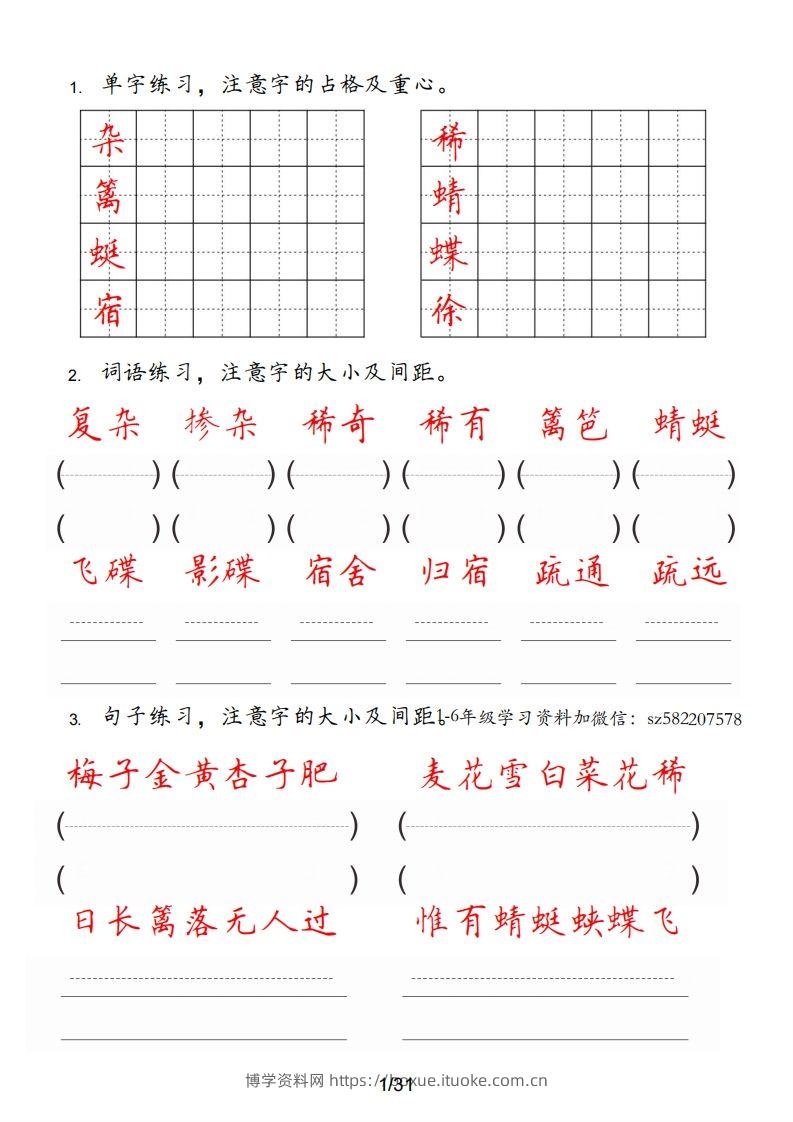 1. 单字练习，注意字的占格及重心。
杂 稀
篱 蜻
蜓 蝶
宿 徐
2. 词语练习，注意字的大小及间距。
复杂 掺杂 稀奇 稀有 篱笆 蜻蜓
( ) ( ) ( ) ( ) ( ) ( )
( ) ( ) ( ) ( ) ( ) ( )
飞碟 影碟 宿舍 归宿 疏通 疏远
3. 句子练习，注意字的大小及间距。1-6年级学习资料加微信：sz582207578
梅子金黄杏子肥 麦花雪白菜花稀
( ) ( )
( ) ( )
日长篱落无人过 惟有蜻蜓蛱蝶飞
博学资料网 https://boxue.ituoke.com.cn
1/31